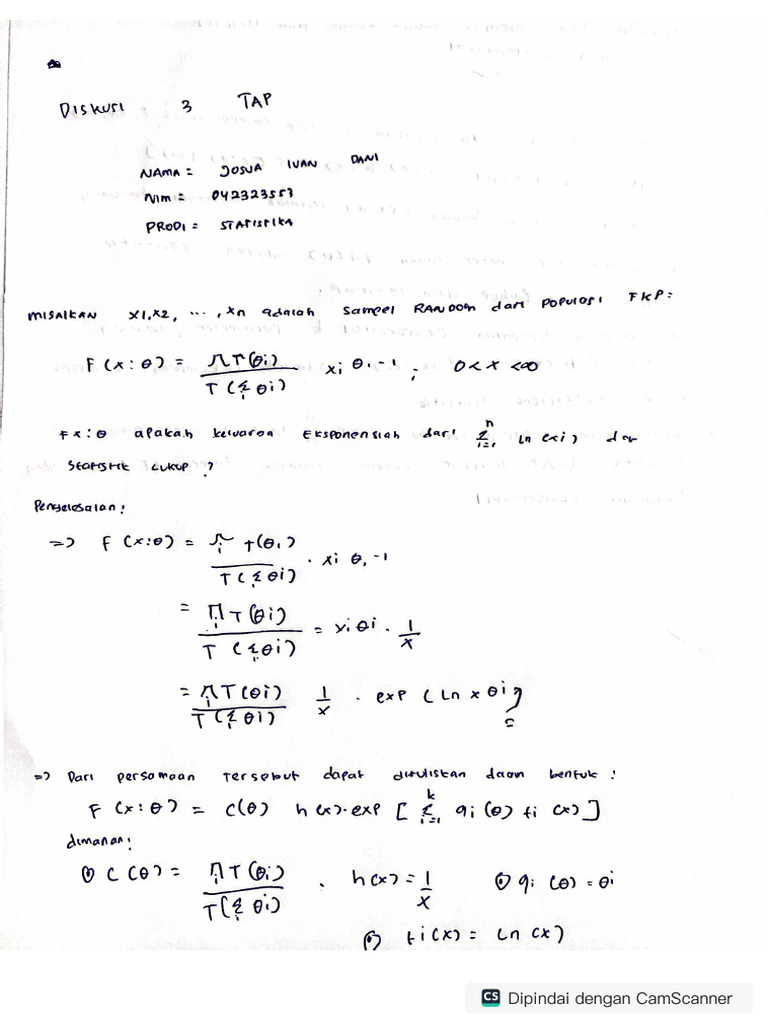 Diskusi 3 TAP
NAMA = JOSUA IVAN DANI
NIM = 042323557
PRODI = STATISTIKA
MISALKAN X1, X2, ..., Xn adalah sampel RANDOM dari POPULASI FKP:
F(x:θ) = ΠΓ(θi) / Γ(Σ θi) xi θi-1 ; 0<x<∞
Fx:θ apakah keluarga Eksponensiah dari Σ i=1 n ln (xi) dan
Statistik cukup ?
Penyelesaian:
=> F(x:θ) = Π Γ(θi) / Γ(Σ θi) . xi θi -1
= Π Γ(θi) / Γ(Σ θi) = xi θi . 1/x
= Π Γ(θi) / Γ(Σ θi) 1/x . exp (Ln x θi)
=> Dari persamaan tersebut dapat dituliskan daam bentuk :
F(x:θ) = C(θ) h(x).exp [ Σ i=1 k qi(θ) ti (x) ]
dimanan:
C(θ) = Π Γ(θi) / Γ(Σ θi) . h(x) = 1/x qi (θ) = θi
ti(x) = Ln (x)
CS Dipindai dengan CamScanner